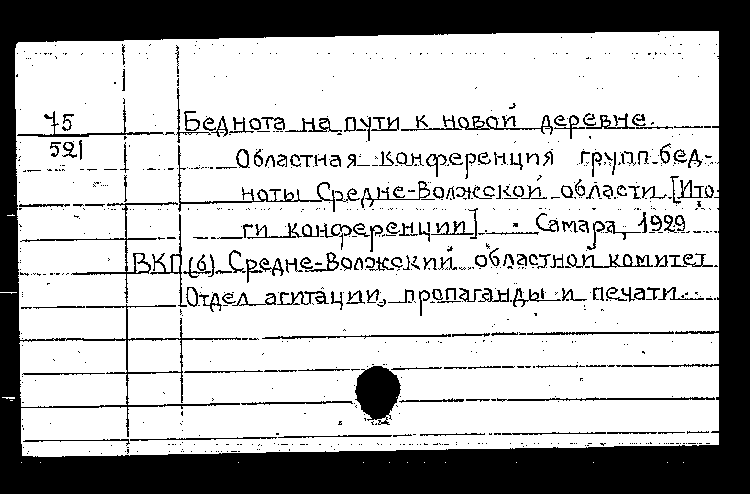 75
521
Беднота на пути к новой деревне.
Областная конференция групп бед-
ноты Средне-Волжской области. [Ито-
ги конференции]. - Самара, 1929
ВКП(б) Средне-Волжский областной комитет
Отдел агитации, пропаганды и печати.